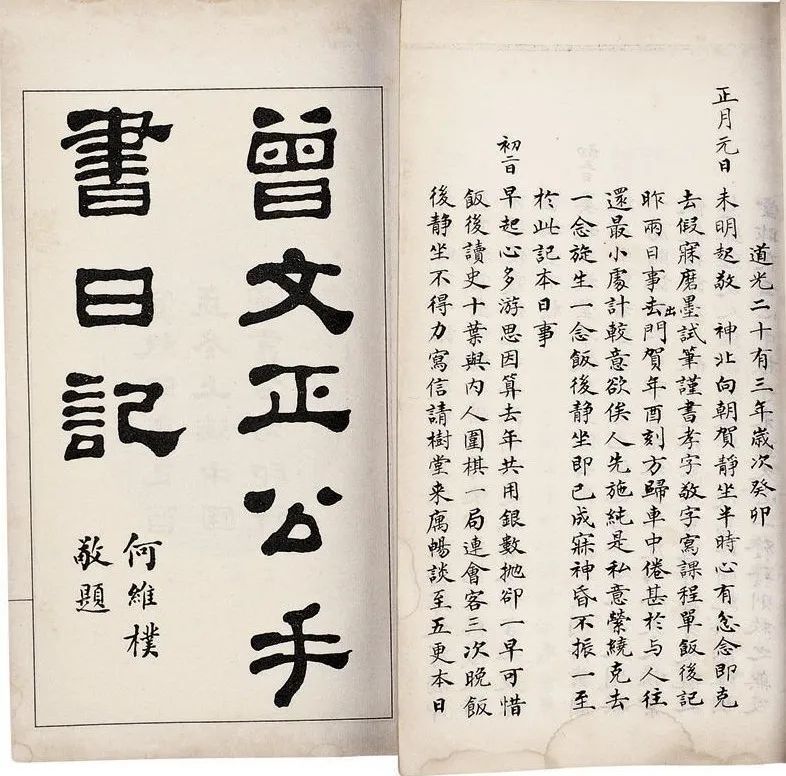 曾文正公手
書日記
何維樸
敬題
道光二十有三年歲次癸卯
正月元日 未明起敬 神北向朝賀靜坐半時心有忿念即克
去假寐磨墨試筆謹書孝字敬字寫課程單飯後記
昨兩日事去出門賀年酉刻方歸車中倦甚於与人往
還最小處計較意欲俟人先施純是私意縈繞克去
一念旋生一念飯後靜坐即已成寐神昏不振一至
於此記本日事
初二日 早起心多游思因算去年共用銀數拋卻一早可惜
飯後讀史十葉與內人圍棋一局連會客三次晚飯
後靜坐不得力寫信請樹堂来寓暢談至五更本日